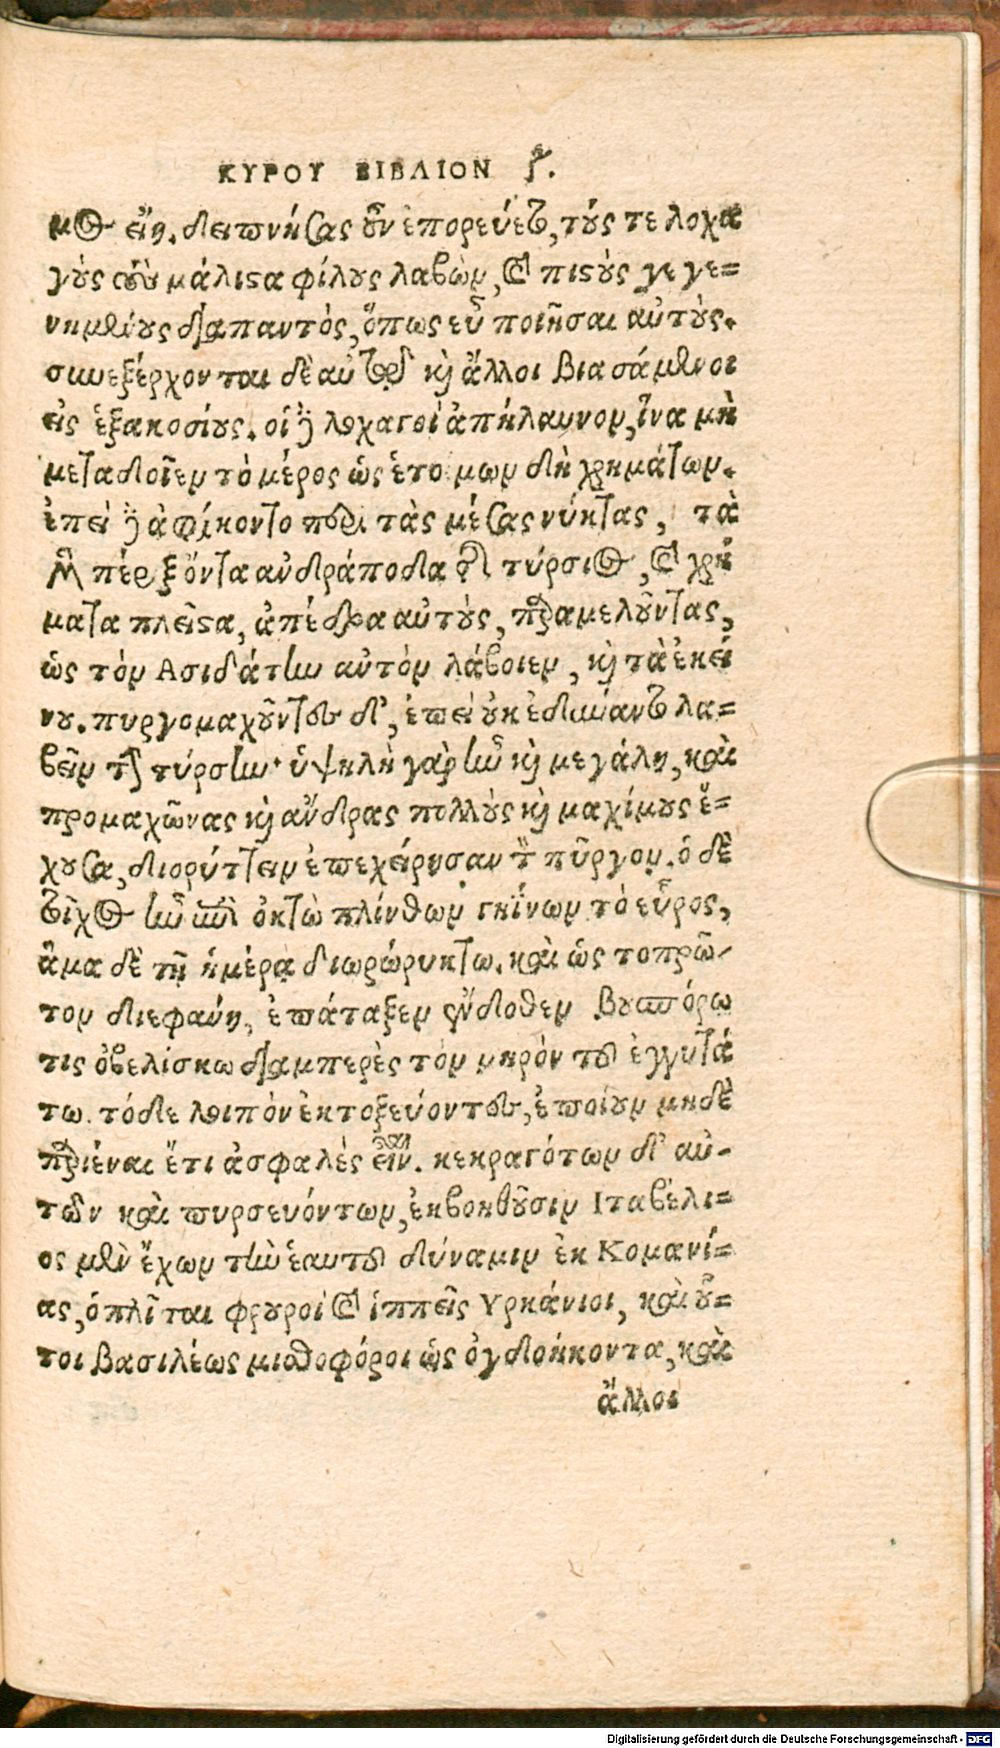 ΚΥΡΟΥ ΒΙΒΛΙΟΝ ζ.
μος εἴη. δειπνήσας οὖν ἐπορεύετο, τούς τε λοχα
γοὺς τοὺς μάλιστα φίλους λαβὼν, καὶ πιστοὺς γεγε=
νημένους διαπαντὸς, ὅπως εὖ ποιῆσαι αὐτούς.
συνεξέρχονται δὲ αὐτῷ καὶ ἄλλοι βιασάμενοι
εἰς ἑξακοσίους. οἱ δὲ λοχαγοὶ ἀπήλαυνον, ἵνα μὴ
μεταδοῖεν τὸ μέρος ὡς ἑτοίμων δὴ χρημάτων.
ἐπεὶ δὲ ἀφίκοντο περὶ τὰς μέσας νύκτας, τὰ
μὲν πέριξ ὄντα ἀνδράποδα τῆς τύρσιος, καὶ χρή
ματα πλεῖστα, ἀπέδρα αὐτοὺς, παραμελοῦντας,
ὡς τὸν Ασιδάτην αὐτὸν λάβοιεν, καὶ τὰ ἐκεί
νου. πυργομαχοῦντες δ', ἐπεὶ οὐκ ἐδύναντο λα=
βεῖν τὴν τύρσιν· ὑψηλὴ γὰρ ἦν καὶ μεγάλη, καὶ
προμαχῶνας καὶ ἄνδρας πολλοὺς καὶ μαχίμους ἔ=
χουσα, διορύττειν ἐπεχείρησαν τὸν πῦργον. ὁ δὲ
τεῖχος ἦν ἐπὶ ὀκτὼ πλίνθων γηΐνων τὸ εὖρος,
ἅμα δὲ τῇ ἡμέρᾳ διωρώρυκτο. καὶ ὡς τοπρῶ-
τον διεφάνη, ἐπάταξεν ἔνδοθεν βουπόρω
τις ὀβελίσκω διαμπερὲς τὸν μηρὸν τοῦ ἐγγυτά
τω. τόδε λοιπὸν ἐκτοξεύοντες, ἐποίουν μηδὲ
παριέναι ἔτι ἀσφαλὲς εἶναι. κεκραγότων δ' αὐ-
τῶν καὶ πυρσευόντων, ἐκβοηθοῦσιν Ιταβέλι=
ος μὲν ἔχων τὴν ἑαυτοῦ δύναμιν ἐκ Κομανί=
ας, ὁπλῖται φρουροὶ καὶ ἱππεῖς Υρκάνιοι, καὶ οὗ=
τοι βασιλέως μισθοφόροι ὡς ὀγδοήκοντα, καὶ
ἄλλοι
Digitalisierung gefördert durch die Deutsche Forschungsgemeinschaft - DFG